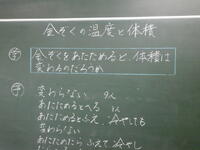 金ぞくの温度と体積
学 金ぞくをあたためると、体積は
変わるのだろうか
予
変わらない 9人
あたためるとへる 1人
あたためるとふえ、冷やしても
変わらない
あたためたらふえて冷やし